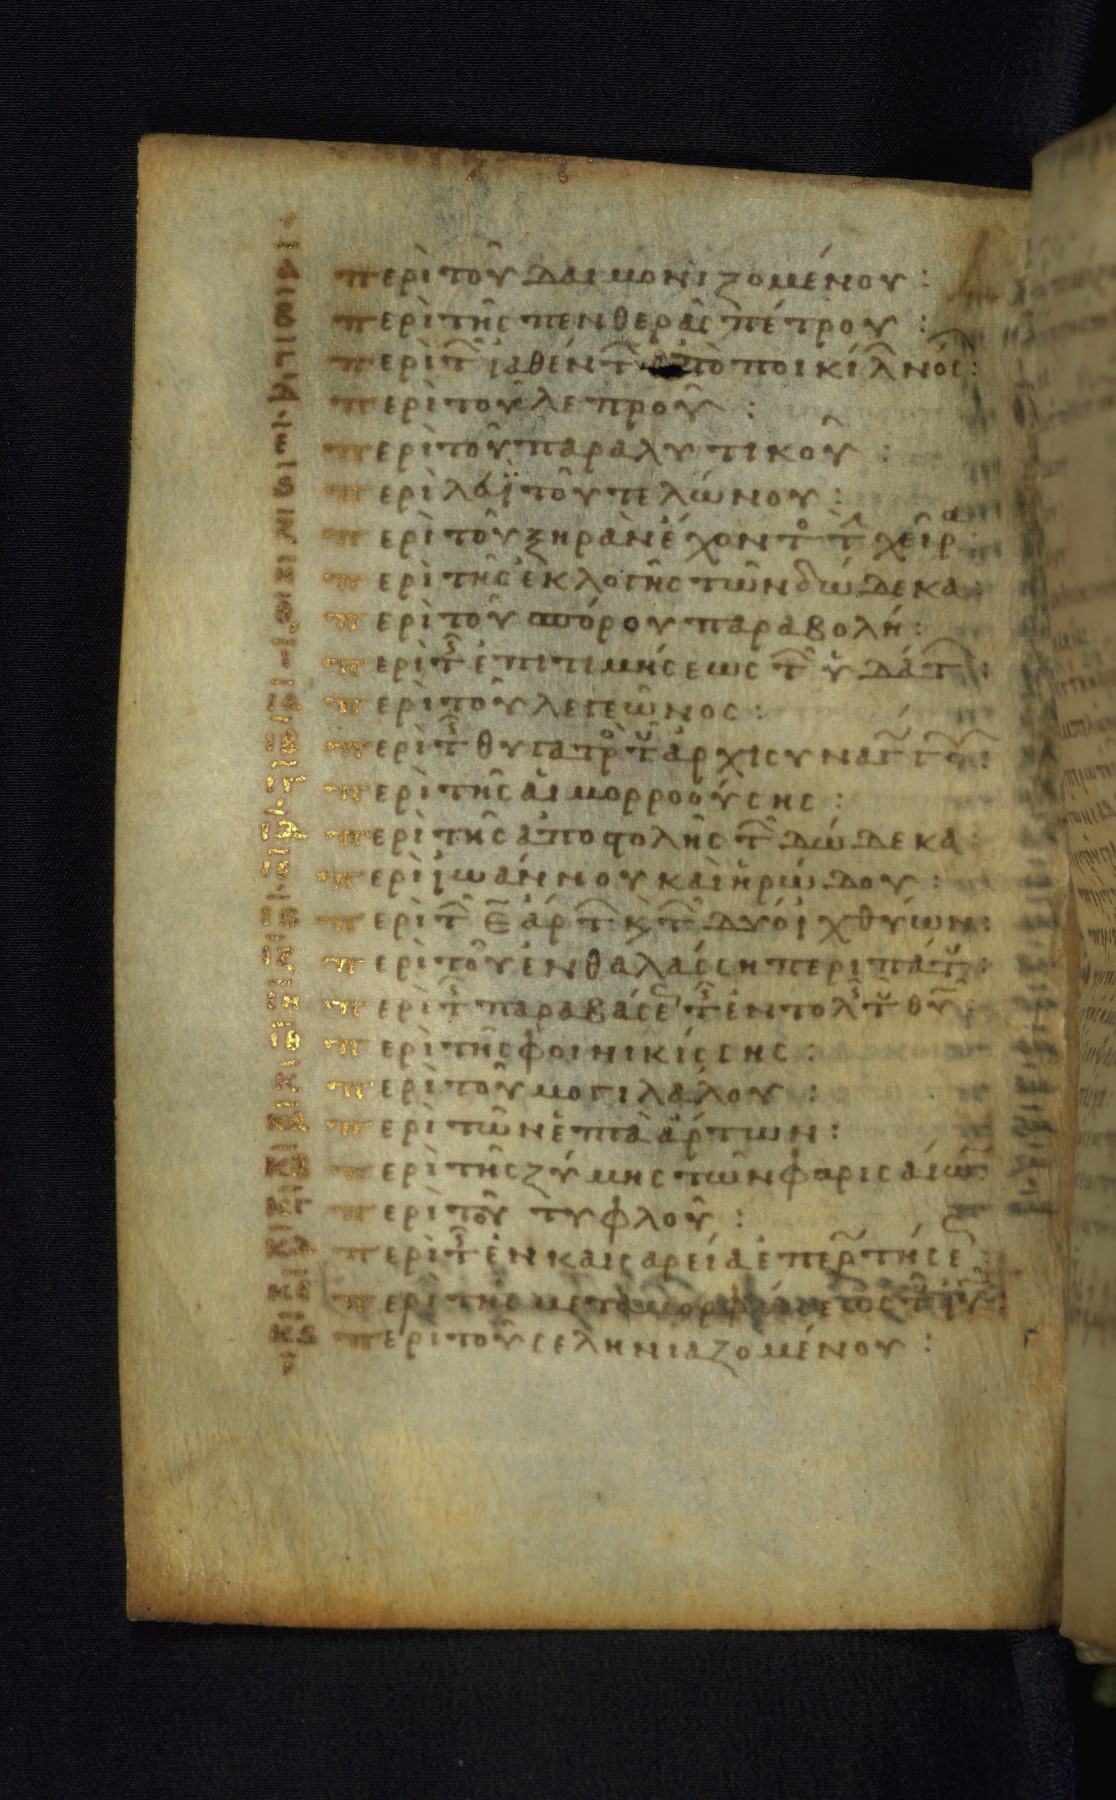 α περὶ τοῦ δαιμονιζομένου :
β περὶ τῆς πενθερᾶς πέτρου :
γ περὶ τ̑ ἰαθέντ̑ ἀπὸ ποικίλ νόσ :
δ περὶ τοῦ λεπροῦ :
ε περὶ τοῦ παραλυτικοῦ :
ς περὶ λευῒ τοῦ τελώνου :
ζ περὶ τοῦ ξηρὰν ἔχοντ τ χεῖρα :
η περὶ τῆς ἐκλογῆς τῶν δώδεκα :
θ περὶ τοῦ σπόρου παραβολή :
ι περὶ τ ἐπιτιμήσεως τ ὑδάτ :
ια περὶ τοῦ λεγεῶνος :
ιβ περὶ τ θυγατρ τ ἀρχισυναγωγ :
ιγ περὶ τῆς αἱμορροούσης :
ιδ περὶ τῆς ἀποστολῆς τ δώδεκα
ιε περὶ ἰωάννου καὶ ἡρώδου :
ις περὶ τ ε̄ ἄρτ κ τ δύο ἰχθύων :
ιζ περὶ τοῦ ἐν θαλάσση περιπάτ :
ιη περὶ τ παραβάσε τ ἐντολ τ θυ :
ιθ περὶ τῆς φοινικίσσης :
κ περὶ τοῦ μογιλάλου :
κα περὶ τῶν ἑπτὰ ἄρτων :
κβ περὶ τῆς ζύμης τῶν φαρισαίων
κγ περὶ τοῦ τυφλοῦ :
κδ περὶ τ ἐν καισαρεία ἐπερωτήσε :
κε περὶ τῆς μεταμορφώσεως τ ιυ :
κς περὶ τοῦ σεληνιαζομένου :